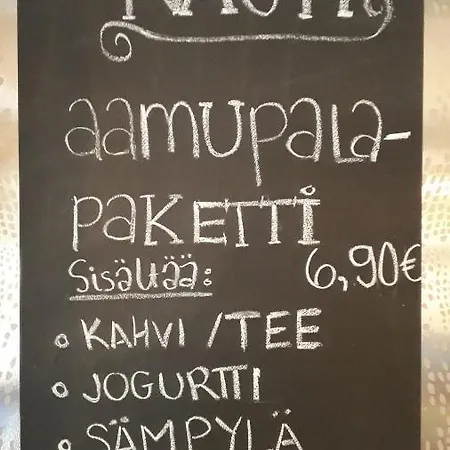 NAUTI
aamupala-
paketti
Sisältää:
6,90€
• KAHVI /TEE
• JOGURTTI
• SÄMPYLÄ